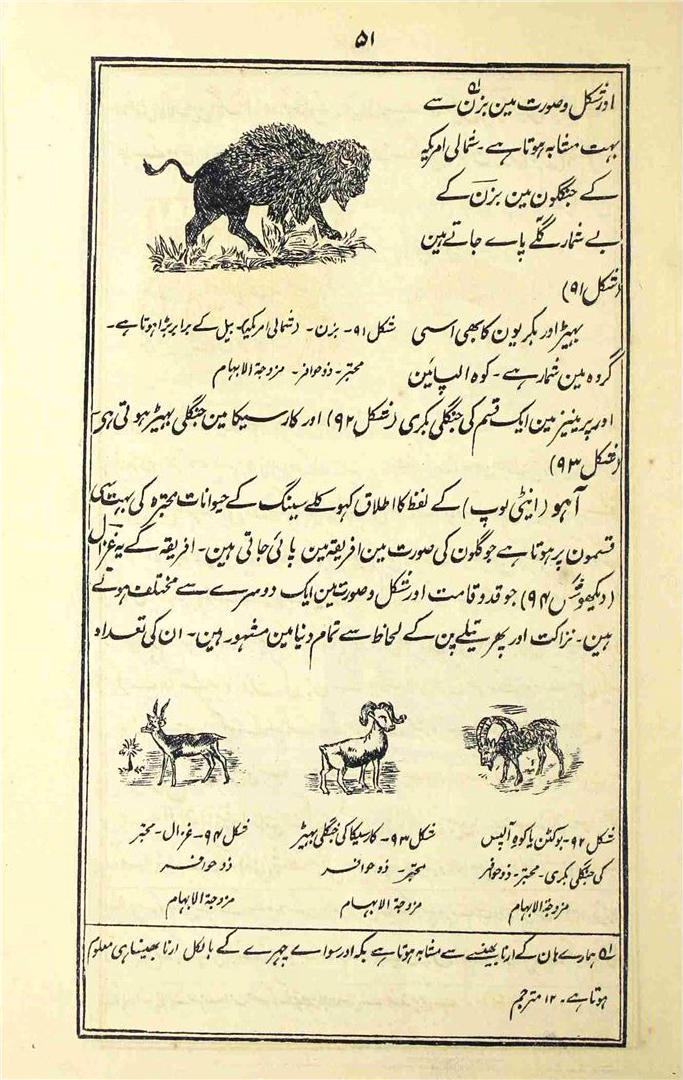 ۵۱
اور شکل و صورت مین بزن سے
بہت مشابہ ہوتا ہے۔ شمالی امریکہ
کے جنگلون مین بزن کے
بے شمار گلّے پاے جاتے ہین
(شکل ۹۱)
بہیڑ اور بکریون کا بھی اسی
گروہ مین شمار ہے۔ کوہ الپائین
شکل ۹۱۔ بزن۔ (شمالی امریکہ) بیل کے برابر بڑا ہوتا ہے۔
مجتر۔ ذوحوافر۔ مزوجۃ الابہام
اور پرینیز مین ایک قسم کی جنگلی بکری (شکل ۹۲) اور کارسیکا مین جنگلی بہیڑ ہوتی ہے
(شکل ۹۳)
آہو (اینٹی لوپ) کے لفظ کا اطلاق کہوکلے سینگ کے حیوانات مجترہ کی بہت سی
قسمون پر ہوتا ہے جو گلون کی صورت مین افریقہ مین پائی جاتی ہین۔ افریقہ کے یہ غزال
(دیکھو ۹۴) جو قد و قامت اور شکل و صورت مین ایک دوسرے سے مختلف ہوتے
ہین۔ نزاکت اور پھرتیلے پن کے لحاظ سے تمام دنیا مین مشہور ہین۔ ان کی تعداد
شکل ۹۲۔ بوکٹن یا کوہ آلپس
کی جنگلی بکری۔ مجتر۔ ذوحوافر
مزوجۃ الابہام
شکل ۹۳۔ کارسیکا کی جنگلی بہیڑ
مجتر۔ ذوحوافر
مزوجۃ الابہام
شکل ۹۴۔ غزال۔ مجتر
ذوحوافر
مزوجۃ الابہام
۵۱ ہمارے ہان کے ارنا بھینسے سے مشابہ ہوتا ہے بلکہ اور سواے چہرے کے بالکل ارنا بھینسا ہی معلوم
ہوتا ہے۔ ۱۲ مترجم